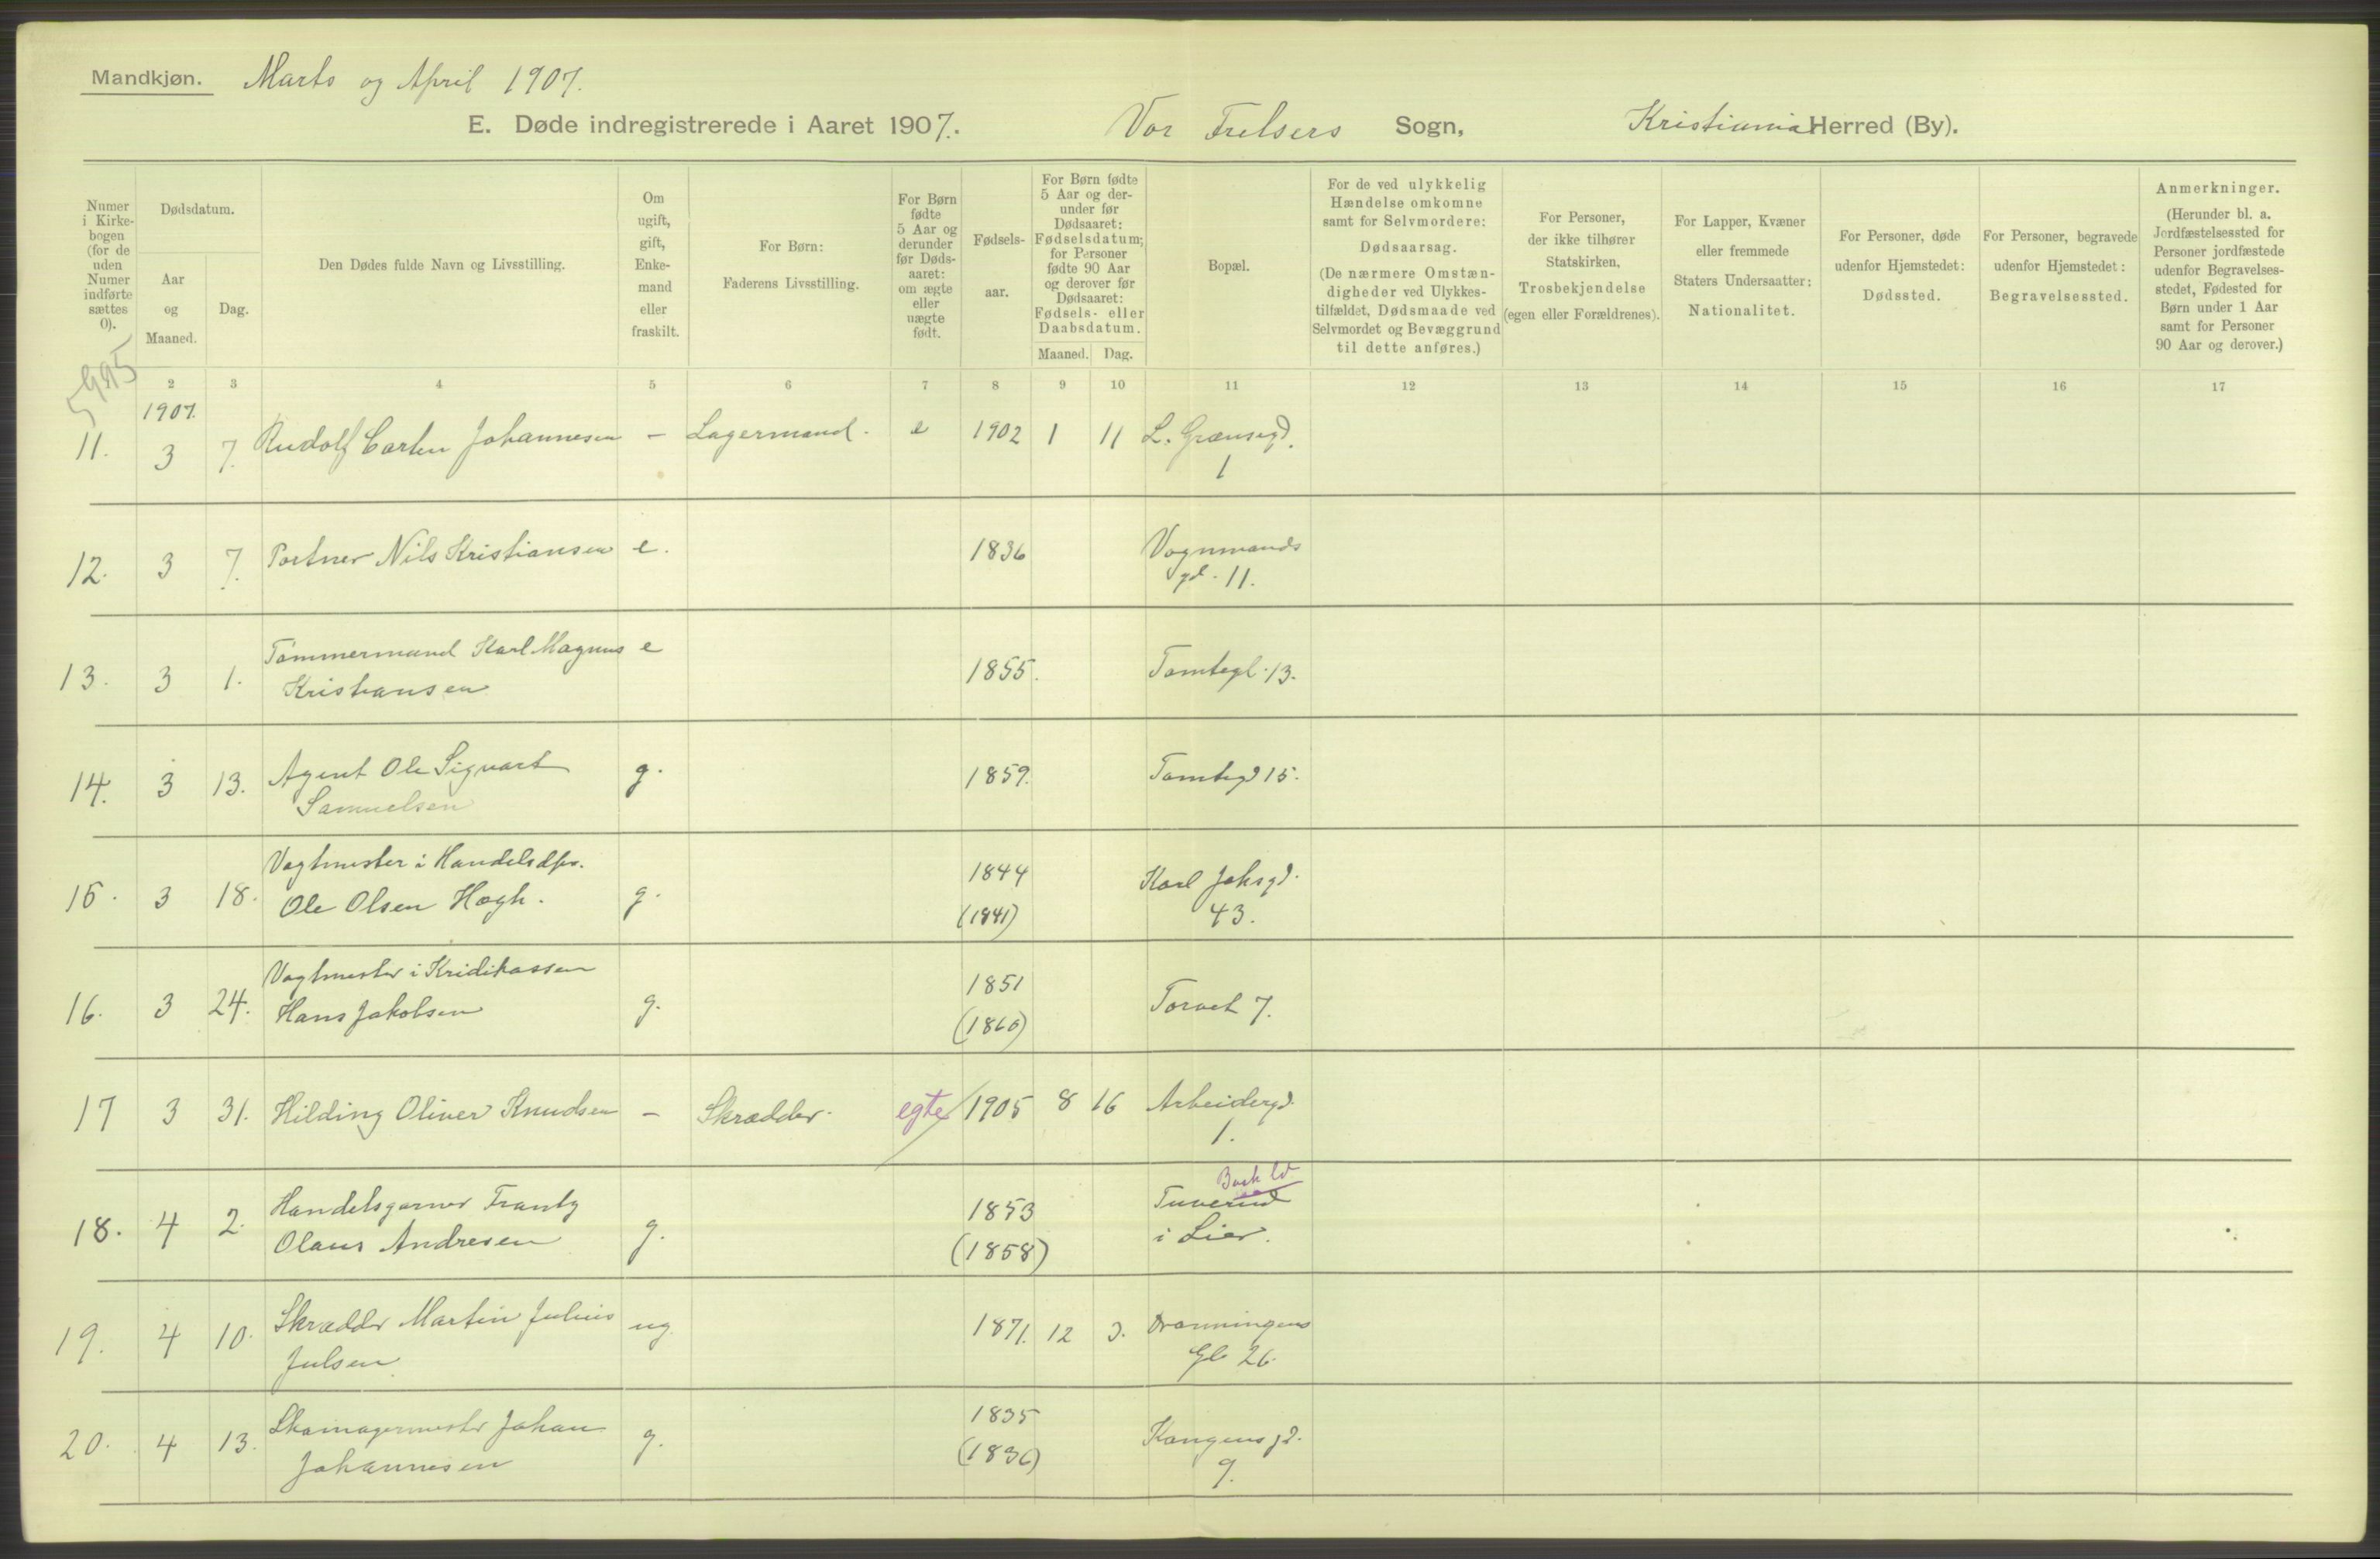 Mandkjøn. Marts og April 1907.
E. Døde indregistrerede i Aaret 1907. Vor Frelsers Sogn, Kristiania Herred (By).
Numer
i Kirke-
bogen
(for de
uden
Numer
indførte
sættes
0).
Dødsdatum.
Aar
og
Maaned.
Dag.
Den Dødes fulde Navn og Livsstilling.
Om
ugift,
gift,
Enke-
mand
eller
fraskilt.
For Børn:
Faderens Livsstilling.
For Børn
fødte
5 Aar og
derunder
før Døds-
aaret:
om ægte
eller
uægte
født.
Fødsels-
aar.
For Børn fødte
5 Aar og der-
under før
Dødsaaret:
Fødselsdatum;
for Personer
fødte 90 Aar
og derover før
Dødsaaret:
Fødsels- eller
Daabsdatum.
Maaned. Dag.
Bopæl.
For de ved ulykkelig
Hændelse omkomne
samt for Selvmordere:
Dødsaarsag.
(De nærmere Omstæn-
digheder ved Ulykkes-
tilfældet, Dødsmaade ved
Selvmordet og Bevæggrund
til dette anføres.)
For Personer,
der ikke tilhører
Statskirken,
Trosbekjendelse
(egen eller Forældrenes).
For Lapper, Kvæner
eller fremmede
Staters Undersaatter:
Nationalitet.
For Personer, døde
udenfor Hjemstedet:
Dødssted.
For Personer, begravede
udenfor Hjemstedet:
Begravelsessted.
Anmerkninger.
(Herunder bl. a.
Jordfæstelsessted for
Personer jordfæstede
udenfor Begravelses-
stedet, Fødested for
Børn under 1 Aar
samt for Personer
90 Aar og derover.)
2 3 4 5 6 7 8 9 10 11 12 13 14 15 16 17
1907.
11. 3 7. Rudolf Carten Johannesen - Lagermand. e 1902 1 11 L. Grænsegd.
1
12. 3 7. Portner Nils Kristiansen e. 1836 Vognmands
gd. 11.
13. 3 1. Tømmermand Karl Magnus e 1855. Tomtegt. 13.
Kristiansen
14. 3 13. Agent Ole Sigvart g. 1859. Tomtegd 15.
Samuelsen
15. 3 18. Vagtmester i
Ole Olsen Høgh. g. 1844 Karl Johsgd.
(1841) 43.
16. 3 24. Vagtmester i Kreditkassen
Hans Jakobsen g. 1851 Torvet 7.
(1860)
17 3 31. Hilding Oliver Knudsen - Skrædder. egte 1905 8 16 Arbeidergd.
1.
18. 4 2. Handelsgartner Frantz 1853
Olaus Andresen g. (1858) i Lier.
19. 4 10. Skrædder Martin Julius ug 1871. 12 3. Dronningens
Julsen Gt. 26.
20. 4 13. Skomagermester Johan g. 1835 Kongens gd.
Johannesen (1836) 9.